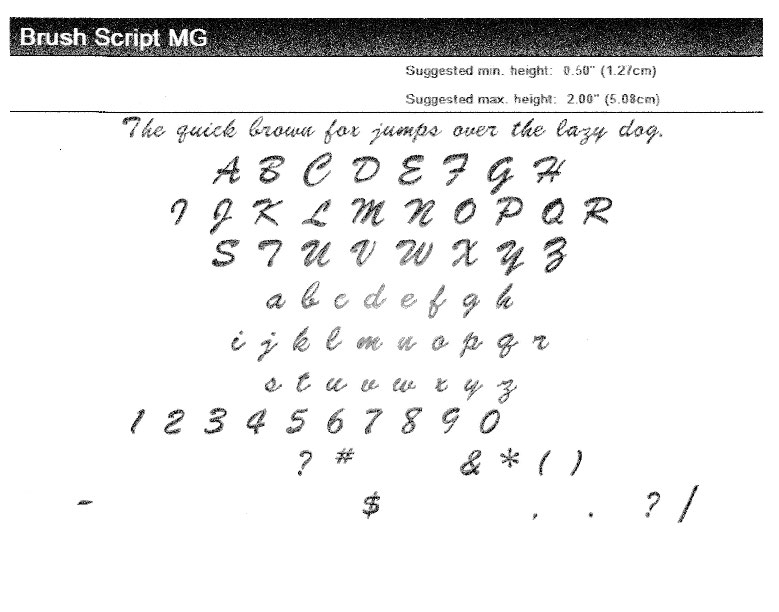 Brush Script MG
Suggested min. height: 0.50" (1.27cm)
Suggested max. height: 2.00" (5.08cm)
The quick brown fox jumps over the lazy dog.
A B C D E F G H
I J K L M N O P Q R
S T U V W X Y Z
a b c d e f g h
i j k l m n o p q r
s t u v w x y z
1 2 3 4 5 6 7 8 9 0
? # & * ( )
- $ , . ? /